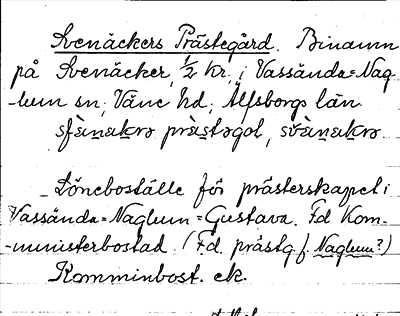 Svenäckers Prästegård. Binamn
på Svenäcker, 1/2 kr., i Vassända=Nag-
-lum sn, Väne hd, Älfsborgs län.
sfänakrə prästəgol, svänakrə
Löneboställe för prästerskapet i
Vassända=Naglum=Gustava. Fd Kom-
-ministerbostad. (Fd. prästg. f. Naglum?)
Komminbost. ek.